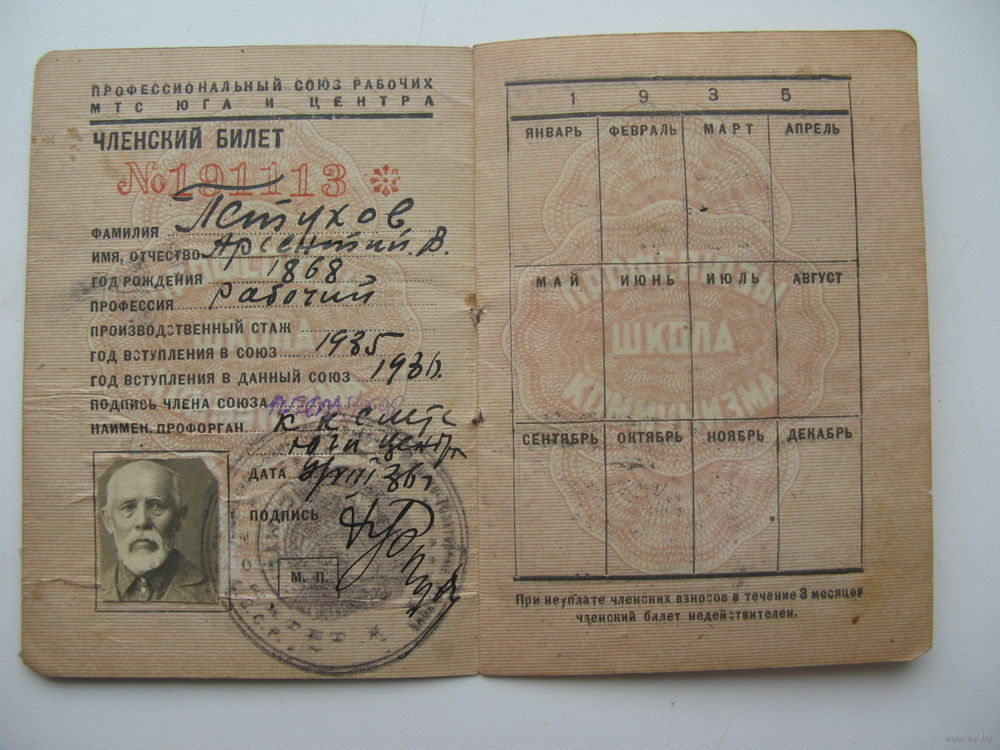 ПРОФЕССИОНАЛЬНЫЙ СОЮЗ РАБОЧИХ
МТС ЮГА И ЦЕНТРА
ЧЛЕНСКИЙ БИЛЕТ
№191113
ФАМИЛИЯ Петухов
ИМЯ, ОТЧЕСТВО Арсентий. В.
ГОД РОЖДЕНИЯ 1868
ПРОФЕССИЯ Рабочий
ПРОИЗВОДСТВЕННЫЙ СТАЖ
ГОД ВСТУПЛЕНИЯ В СОЮЗ 1935
ГОД ВСТУПЛЕНИЯ В ДАННЫЙ СОЮЗ 1936.
ПОДПИСЬ ЧЛЕНА СОЮЗА
НАИМЕН. ПРОФОРГАН. К К С МТС
юга центр
ДАТА 9/VIII 36г
ПОДПИСЬ
М. П.
1 9 3 5
ЯНВАРЬ ФЕВРАЛЬ МАРТ АПРЕЛЬ
МАЙ ИЮНЬ ИЮЛЬ АВГУСТ
ШКОЛА
КОММУНИЗМА
СЕНТЯБРЬ ОКТЯБРЬ НОЯБРЬ ДЕКАБРЬ
При неуплате членских взносов в течение 3 месяцев
членский билет недействителен.
www.ay.by